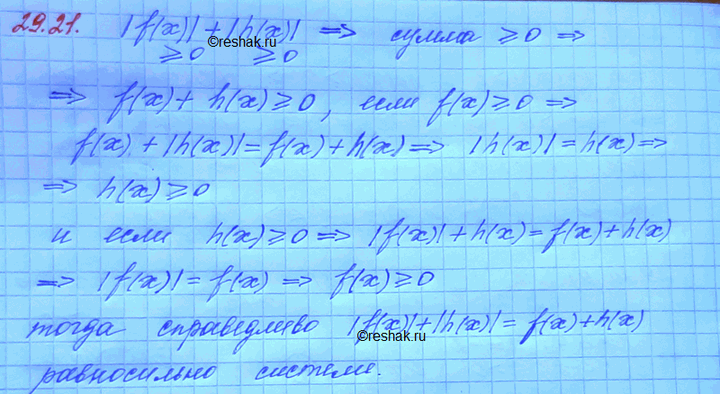 29.21. |f(x)| + |h(x)| => сумма ≥0 =>
©reshak.ru
≥0 ≥0
=> f(x) + h(x) ≥ 0, если f(x) ≥ 0 =>
f(x) + |h(x)| = f(x) + h(x) => |h(x)| = h(x) =>
=> h(x) ≥ 0
и если h(x) ≥ 0 => |f(x)| + h(x) = f(x) + h(x)
=> |f(x)| = f(x) => f(x) ≥ 0
тогда справедливо |f(x)| + |h(x)| = f(x) + h(x)
©reshak.ru
равносильно системе.